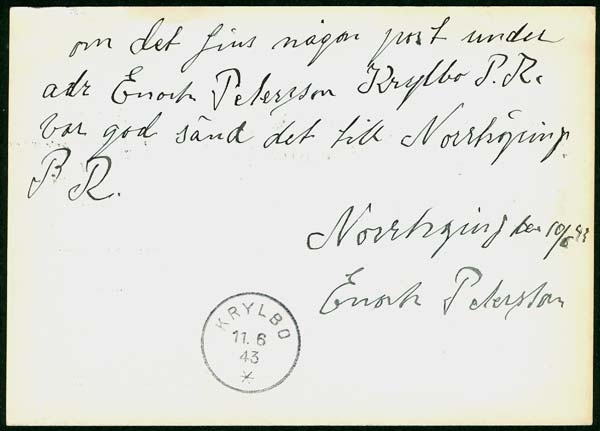 om det fins någon post under
adr Enoch Petersson Krylbo P.R.
var god sänd det till Norrköping
P R.
Norrköping den 10/6 43
Enoch Petersson
KRYLBO
11. 6
43